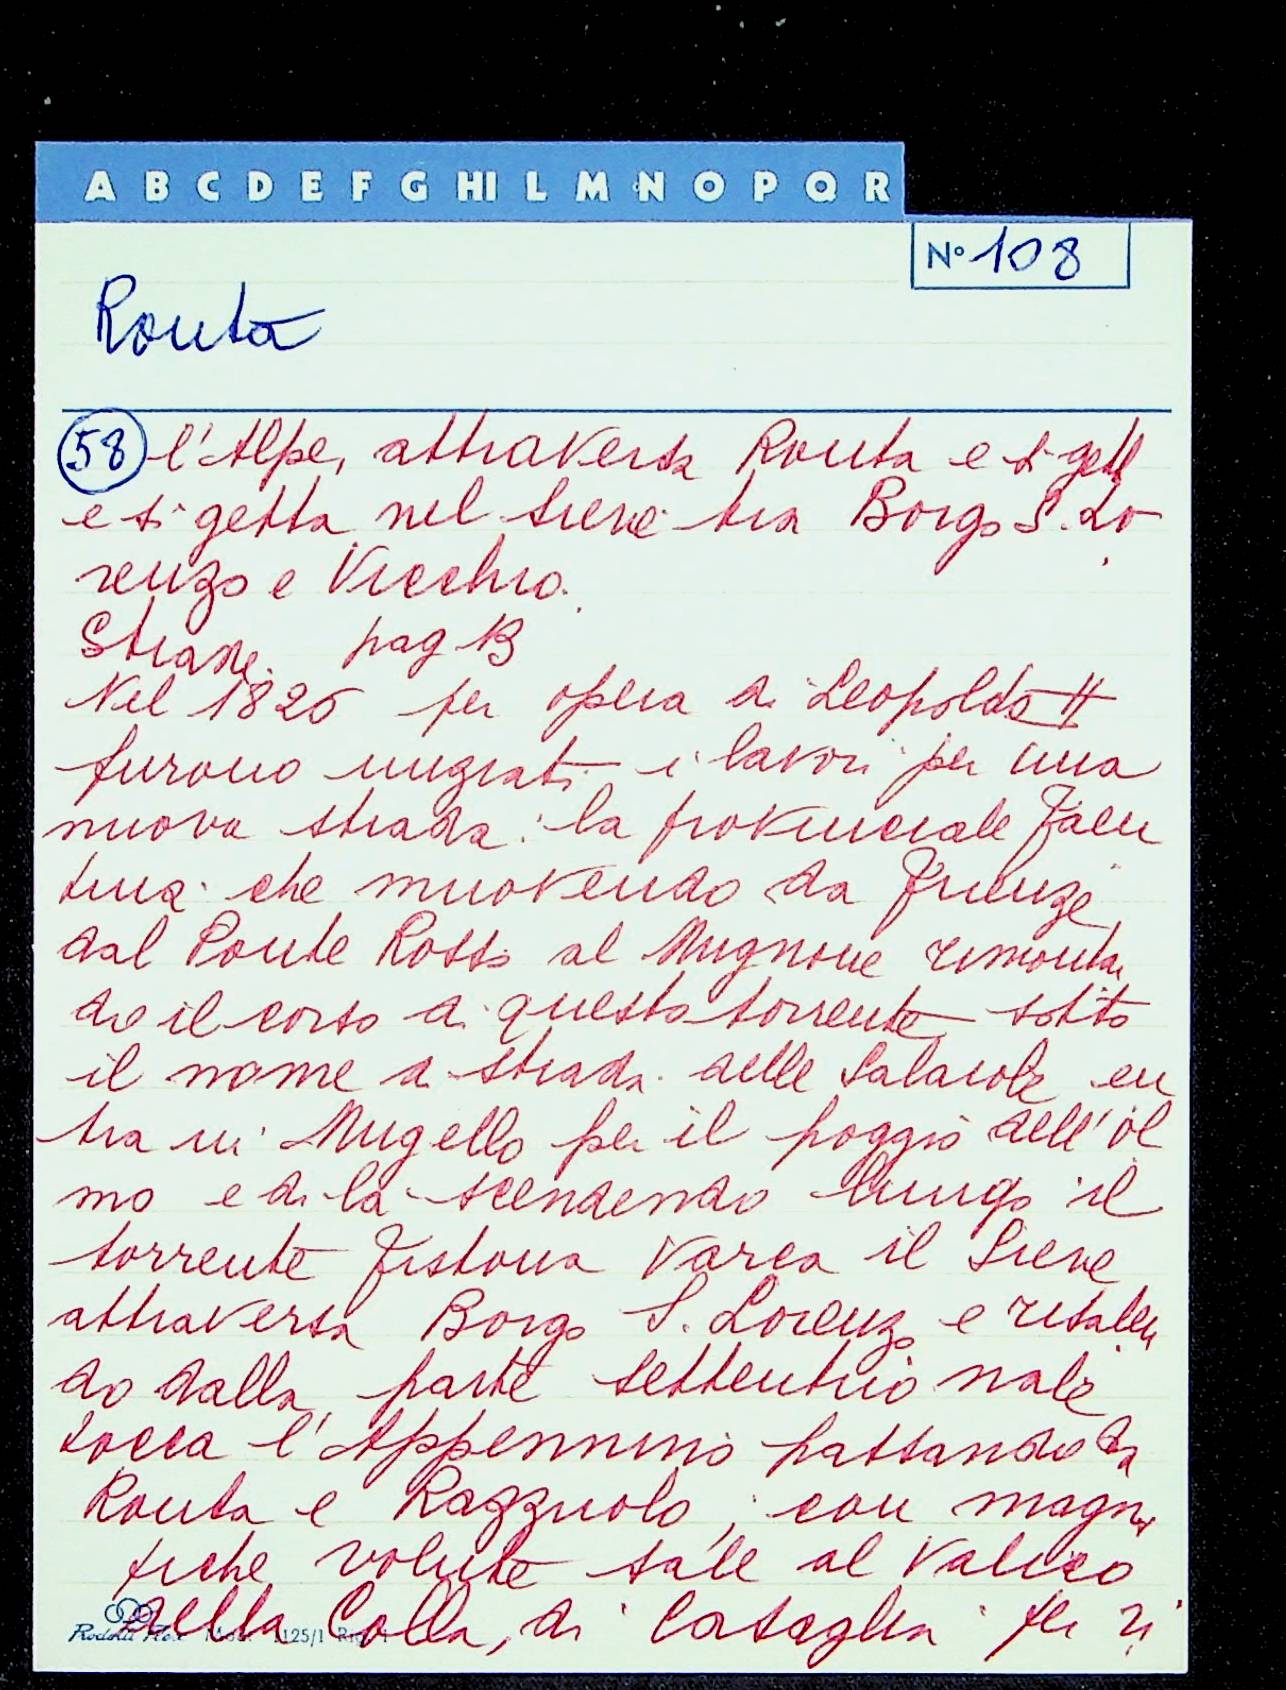 A B C D E F G HI L M N O P Q R
N° 108
Ronta
58 l'Alpe, attraversa Ronta e si gett
e si getta nel Sieve tra Borgo S. Lo
renzo e Vicchio.
Strade. pag 13
Nel 1826 per opera di Leopoldo II
furono iniziati i lavori per una
nuova strada: la provinciale Faen
tina che muovendo da Firenze
dal Ponte Rosso al Mugnone rimontan
do il corso di questo torrente sotto
il nome di strada delle Salaiole en
tra in Mugello per il poggio dell'Ol
mo e di là scendendo lungo il
torrente Fistona varca il Sieve
attraversa Borgo S. Lorenzo e risalen
do dalla parte settentrionale
tocca l'Appennino passando da
Ronta e Razzuolo, con magni
fiche volute sale al Valico
della Colla di Casaglia per ri
1125/1